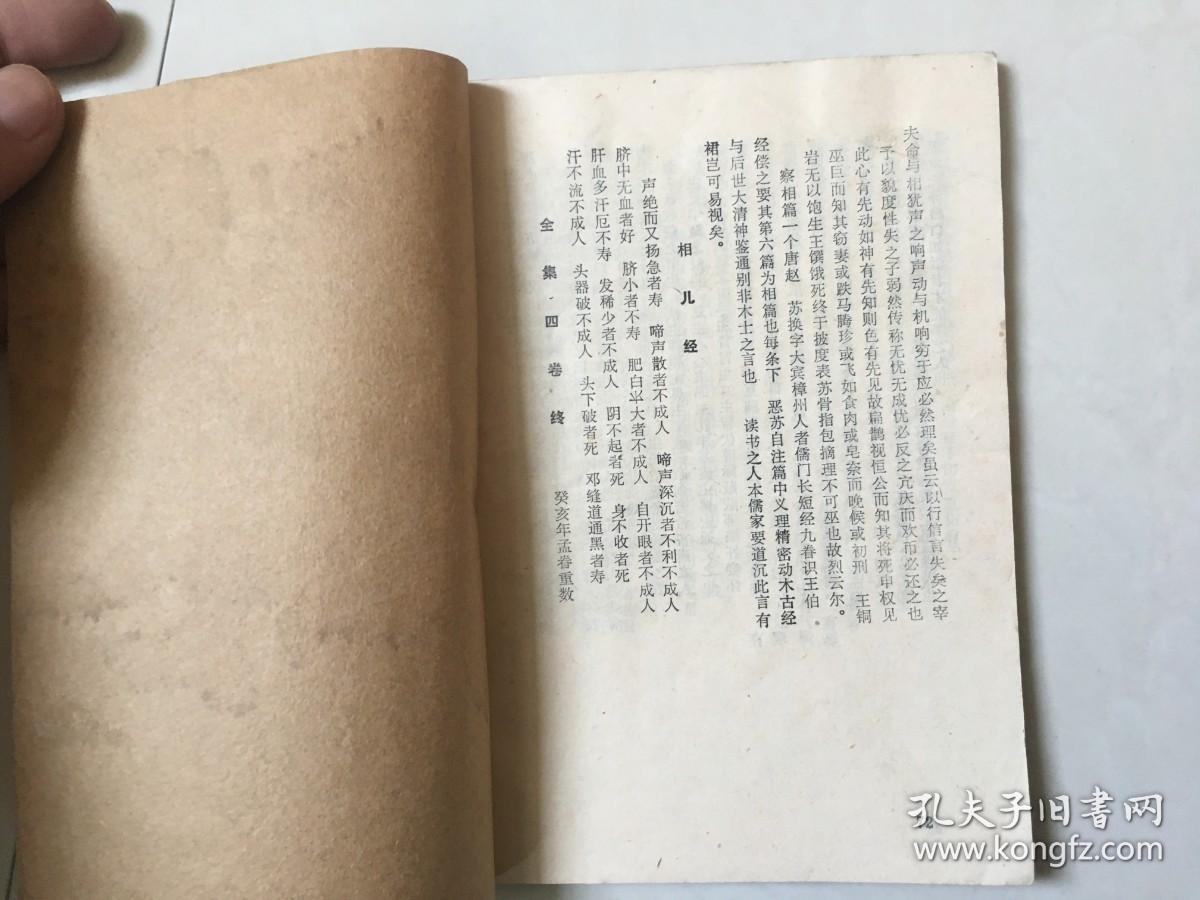 夫命与相犹声之响声动与机响穷于应必然理矣虽云以行信言失矣之宰
予以貌度性失之子弱然传称无忧无戚忧必反之亢庆而欢币必还之也
此心有先动如神有先知则色有先见故扁鹊视恒公而知其将死申权见
巫巨而知其窃妻或跌马腾珍或飞如食肉或皂奈而晚候或初刑 王铜
岩无以饱生王馔饿死终于披度表苏骨指包摘理不可巫也故烈云尔。
察相篇一个唐赵 苏换字大宾樟州人者儒门长短经九眷识王伯。
经偿之要其第六篇为相篇也每条下 恶苏自注篇中义理精密动木古经
与后世大清神鉴通别非木士之言也 读书之人本儒家要道沉此言有
裙岂可易视矣。
相儿经
声绝而又扬急者寿 啼声散者不成人 啼声深沉者不利不成人
脐中无血者好 脐小者不寿 肥白半大者不成人 自开眼者不成人
肝血多汗厄不寿 发稀少者不成人 阴不起者死 身不收者死
汗不流不成人 头器破不成人 头下破者死 邓缝道通黑者寿
全集·四卷·终
癸亥年孟眷重数
孔夫子旧书网
www.kongfz.com